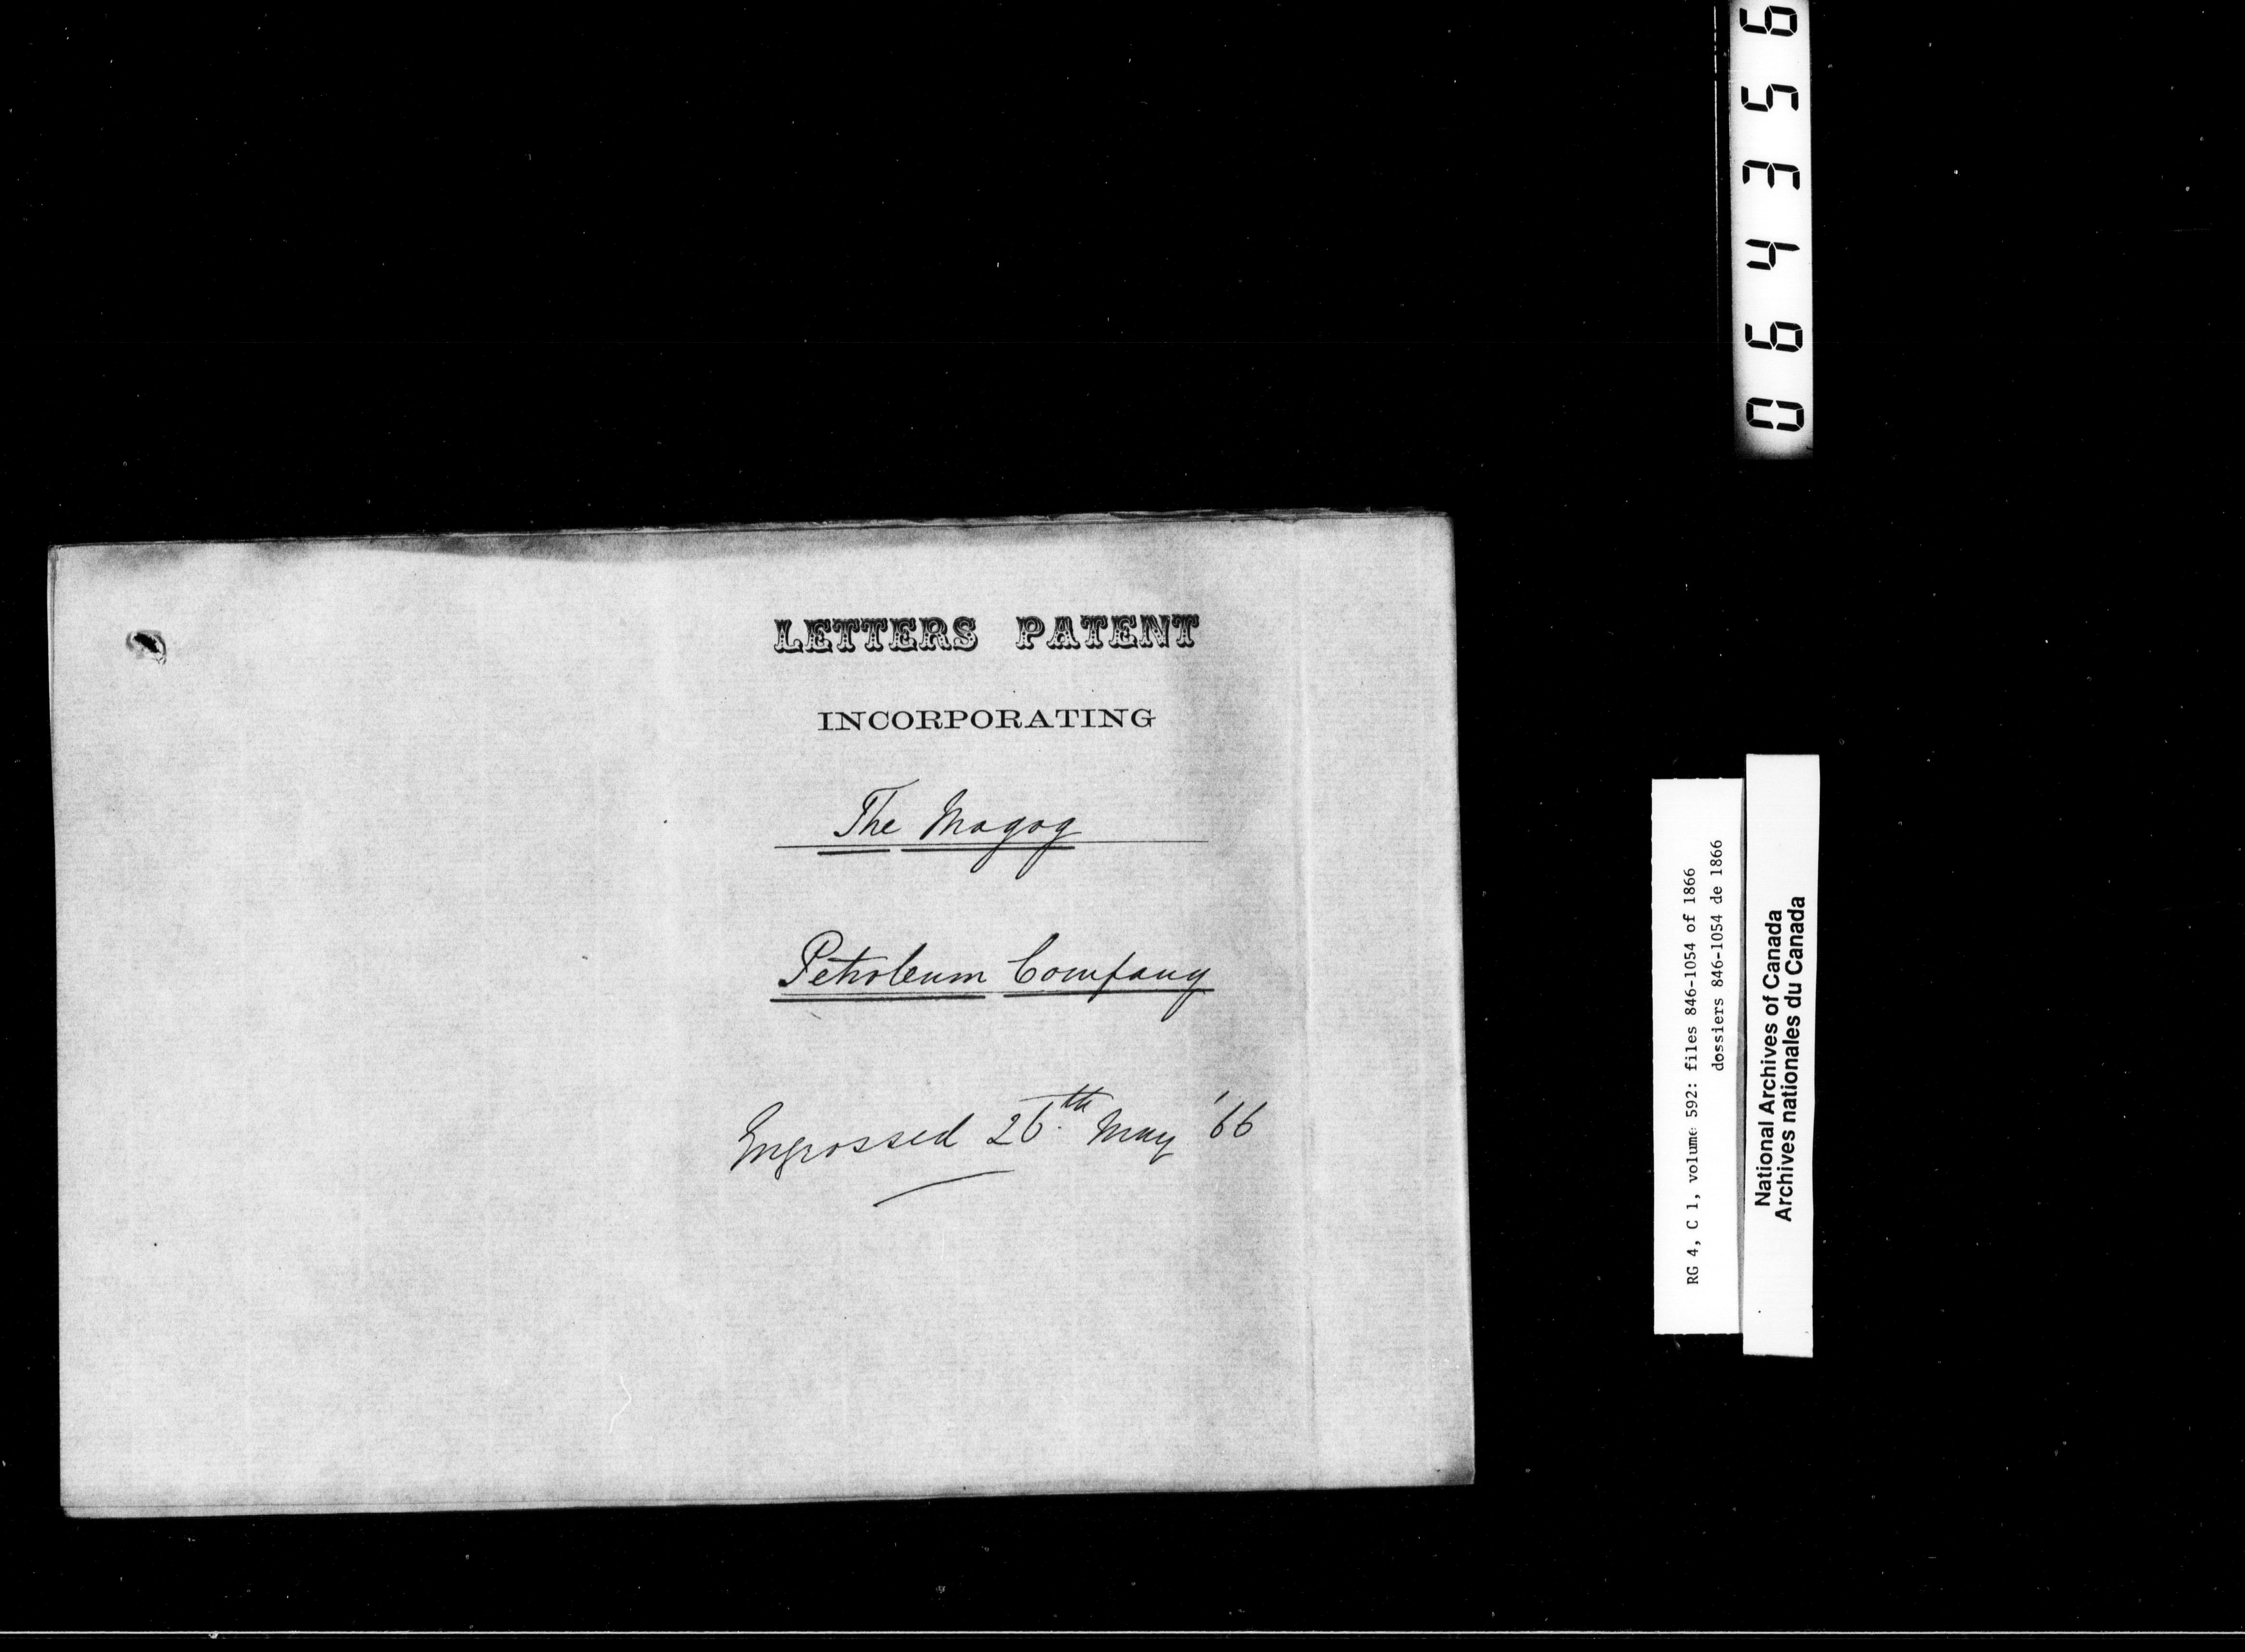 LETTERS PATENT
INCORPORATING
The Magog
Petroleum Company
Engrossed 26th May '66
064356
RG 4, C 1, volume 592: files 846-1054 of 1866
dossiers 846-1054 de 1866
National Archives of Canada
Archives nationales du Canada